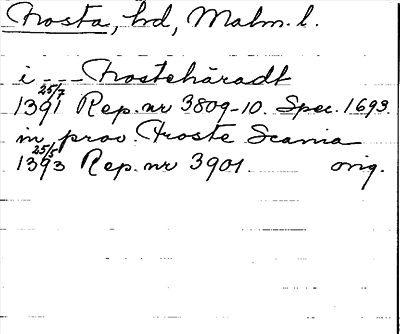 Frosta, hd, Malm. l.
i - - - Frostehäradt
25/7
1391 Rep. nr 3809-10. Spec. 1693.
in prov. Froste Scania
25/5
1393 Rep. nr 3901 orig.